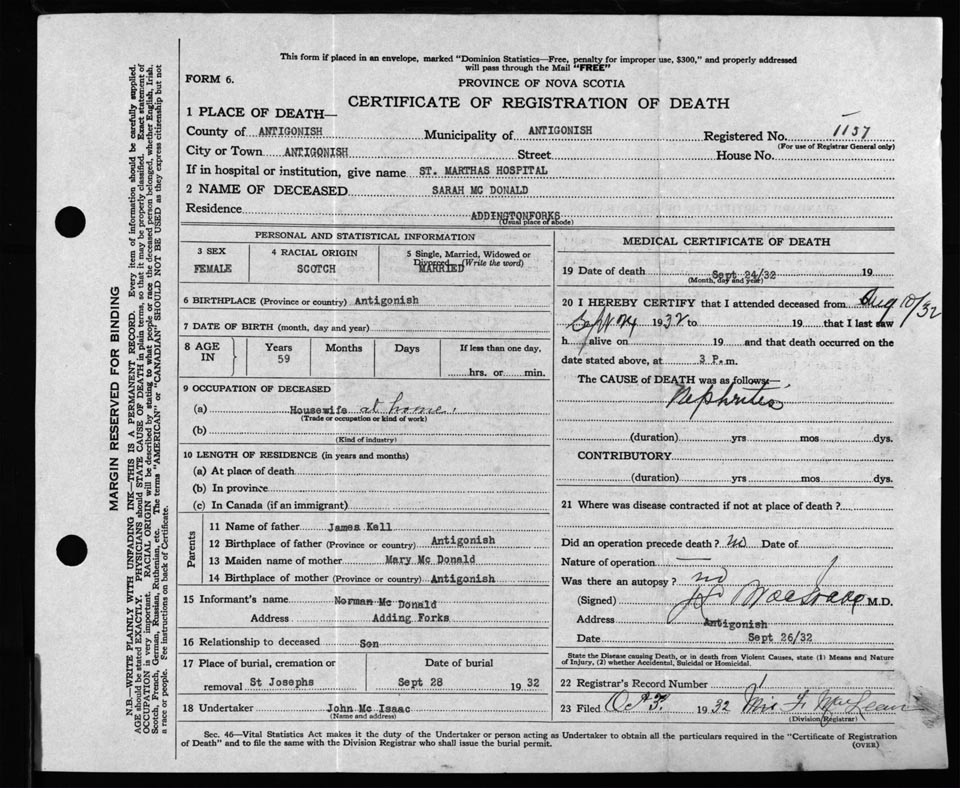 This form if placed in an envelope, marked "Dominion Statistics—Free, penalty for improper use, $300," and properly addressed
will pass through the Mail "FREE"
FORM 6.
PROVINCE OF NOVA SCOTIA
CERTIFICATE OF REGISTRATION OF DEATH
1 PLACE OF DEATH—
County of ANTIGONISH Municipality of ANTIGONISH Registered No. 1157
(For use of Registrar General only)
City or Town ANTIGONISH Street House No.
If in hospital or institution, give name ST. MARTHAS HOSPITAL
2 NAME OF DECEASED SARAH MC DONALD
Residence ADDINGTONFORKS
(Usual place of abode)
PERSONAL AND STATISTICAL INFORMATION
3 SEX 4 RACIAL ORIGIN 5 Single, Married, Widowed or
Divorced (Write the word)
FEMALE SCOTCH MARRIED
6 BIRTHPLACE (Province or country) Antigonish
7 DATE OF BIRTH (month, day and year)
8 AGE IN Years Months Days If less than one day,
59 hrs. or min.
9 OCCUPATION OF DECEASED
(a) Housewife at home.
(Trade or occupation or kind of work)
(b)
(Kind of industry)
10 LENGTH OF RESIDENCE (in years and months)
(a) At place of death
(b) In province
(c) In Canada (if an immigrant)
Parents
11 Name of father James Kell
12 Birthplace of father (Province or country) Antigonish
13 Maiden name of mother Mary Mc Donald
14 Birthplace of mother (Province or country) Antigonish
15 Informant's name Norman Mc Donald
Address Adding Forks
16 Relationship to deceased Son
17 Place of burial, cremation or Date of burial
removal St Josephs Sept 28 1932
18 Undertaker John Mc Isaac
(Name and address)
MEDICAL CERTIFICATE OF DEATH
19 Date of death Sept 24/32 19
(Month, day and year)
20 I HEREBY CERTIFY that I attended deceased from Aug 10/32
Sept 24 1932 to 19 that I last saw
h alive on 19 and that death occurred on the
date stated above, at 3 P.m.
The CAUSE of DEATH was as follows:—
Nephritis
(duration) yrs mos dys.
CONTRIBUTORY
(duration) yrs mos dys.
21 Where was disease contracted if not at place of death?
Did an operation precede death? no Date of
Nature of operation —
Was there an autopsy? no
(Signed) M.D.
Address Antigonish
Date Sept 26/32
State the Disease causing Death, or in death from Violent Causes, state (1) Means and Nature
of Injury, (2) whether Accidental, Suicidal or Homicidal.
22 Registrar's Record Number
23 Filed Oct 7. 1932 F. MacLean
(Division Registrar)
Sec. 46—Vital Statistics Act makes it the duty of the Undertaker or person acting as Undertaker to obtain all the particulars required in the "Certificate of Registration
of Death" and to file the same with the Division Registrar who shall issue the burial permit.
(OVER)
MARGIN RESERVED FOR BINDING
N.B.—WRITE PLAINLY WITH UNFADING INK—THIS IS A PERMANENT RECORD. Every item of information should be carefully supplied.
AGE should be stated EXACTLY. PHYSICIANS should STATE CAUSE OF DEATH in plain terms, so that it may be properly classified. Exact statement of
OCCUPATION is very important. RACIAL ORIGIN will be described by stating to what people or race the deceased person belonged, whether English, Irish,
Scotch, French, German, Russian, Ruthenian, etc. The terms "AMERICAN" or "CANADIAN" SHOULD NOT BE USED as they express citizenship but not
a race or people. See instructions on back of Certificate.